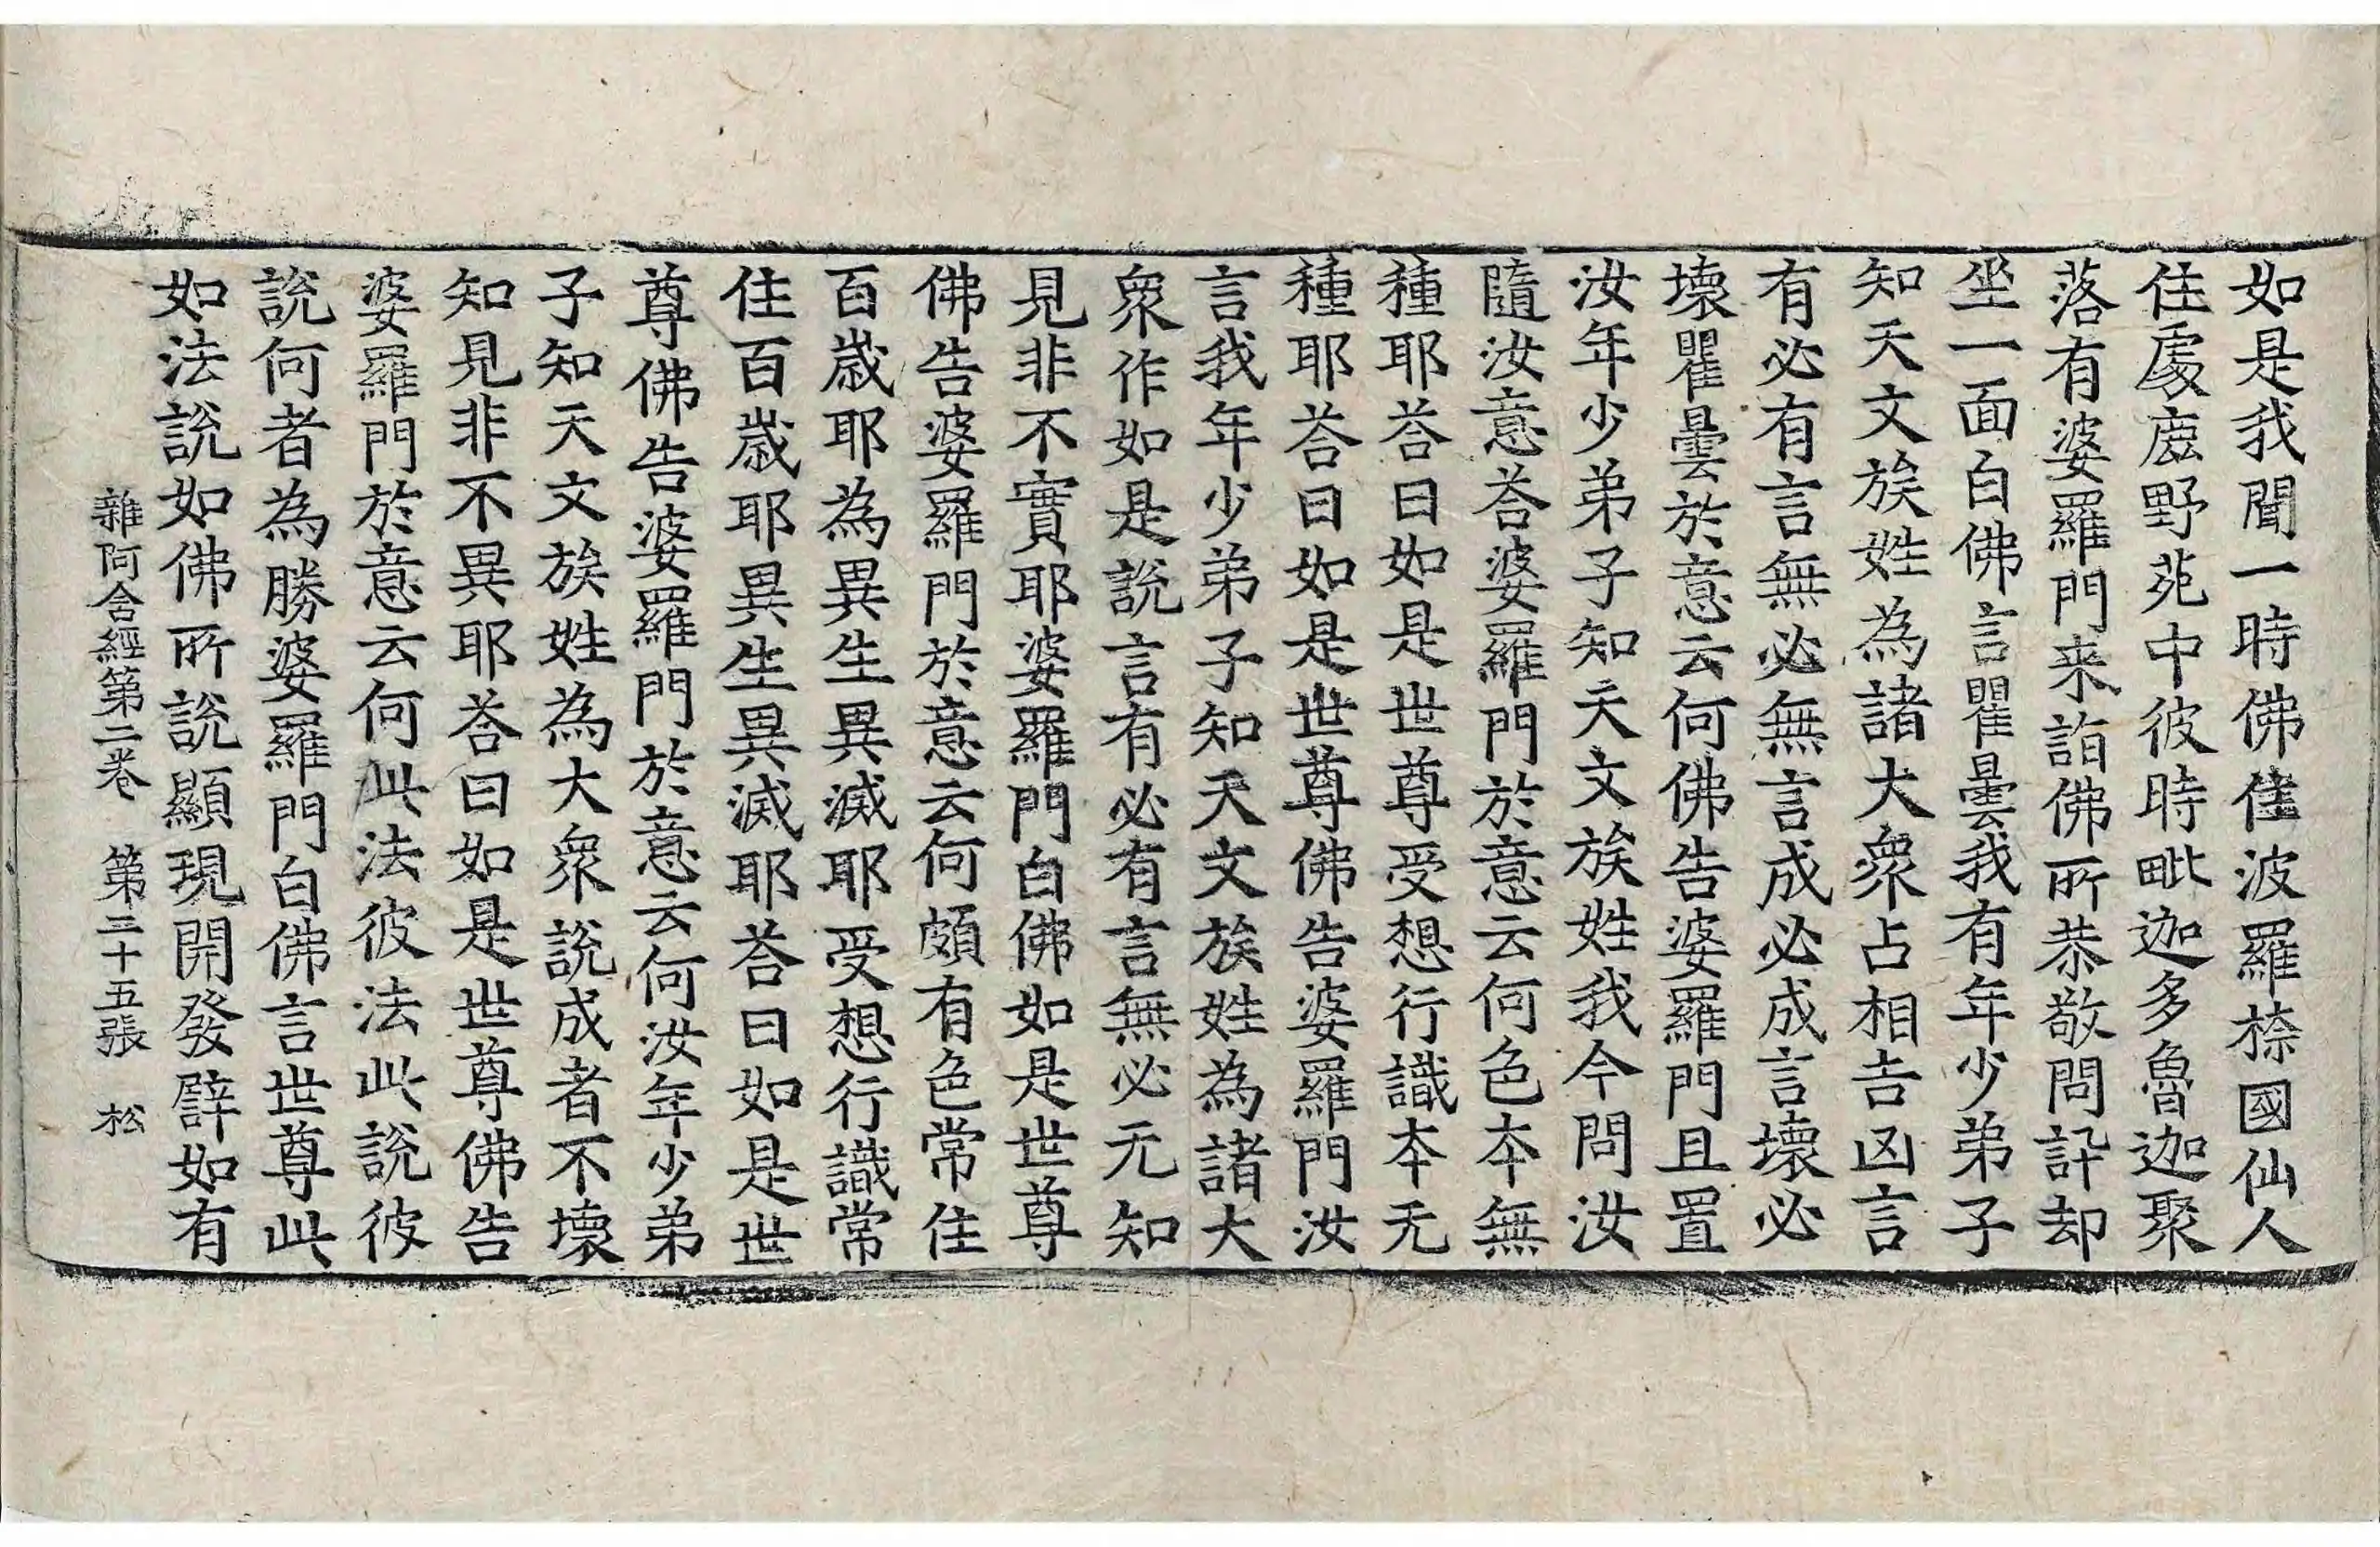 如是我聞一時佛住波羅㮈國仙人
住處鹿野苑中彼時毗迦多魯迦聚
落有婆羅門来詣佛所恭敬問訊却
坐一面白佛言瞿曇我有年少弟子
知天文族姓為諸大衆占相吉凶言
有必有言無必無言成必成言壞必
壞瞿曇於意云何佛告婆羅門且置
汝年少弟子知天文族姓我今問汝
隨汝意荅婆羅門於意云何色本無
種耶荅曰如是世尊受想行識本无
種耶荅曰如是世尊佛告婆羅門汝
言我年少弟子知天文族姓為諸大
衆作如是說言有必有言無必无知
見非不實耶婆羅門白佛如是世尊
佛告婆羅門於意云何頗有色常住
百歲耶為異生異滅耶受想行識常
住百歲耶異生異滅耶荅曰如是世
尊佛告婆羅門於意云何汝年少弟
子知天文族姓為大衆說成者不壞
知見非不異耶荅曰如是世尊佛告
婆羅門於意云何此法彼法此說彼
說何者為勝婆羅門白佛言世尊此
如法說如佛所說顯現開發譬如有
雜阿含經第二卷 第三十五張 松